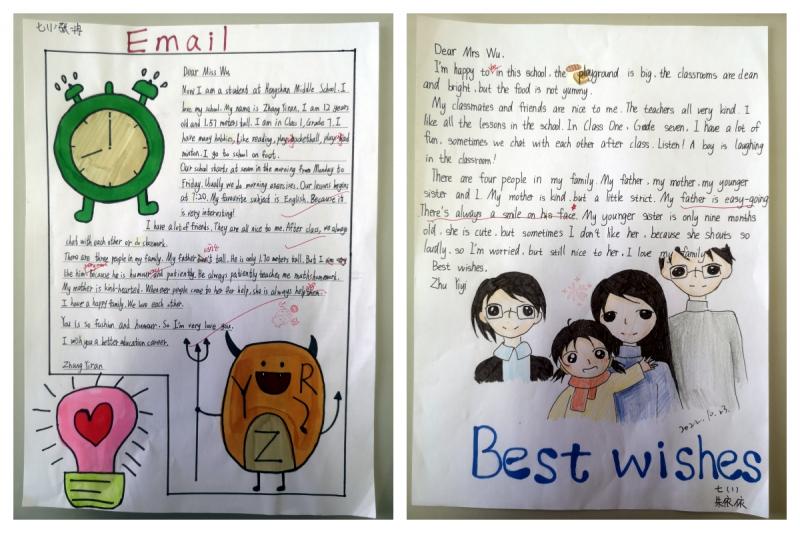 七(1) 张
Email
Dear Miss Wu
Now I am a student at Hongshan Middle School. I
love my school. My name is Zhang Yiran. I am 12 years
old and 1.57 meters tall. I am in Class 1, Grade 7. I
have many hobbies, like reading, play basketball, play bad
minton. I go to school on foot.
Our school starts at seven in the morning from Monday to
Friday. Usually we do morning exercises. Our lessons begins
at 7:20. My favourite subject is English. Because it
is very interesting!
I have a lot of friends. They are all nice to me. After class, we always
chat with each other or do classwork.
There are three people in my family. My father isn't tall. He is only 1.70 meters tall. But I
the him because he is humour and patiently. He always patiently teaches me maths homework.
My mother is kind-hearted. Whenever people come to her for help, she is always help them.
I have a happy family. We love each other.
You is so fashion and humour. So I'm very love you.
I wish you a better education career.
Zhang Yiran
Y R
Z
Dear Mrs Wu.
I'm happy to be in this school. the playground is big. the classrooms are clean
and bright. but the food is not yummy.
My classmates and friends are nice to me. The teachers all very kind. I
like all the lessons in the school. In Class One, Grade seven. I have a lot of
fun. sometimes we chat with each other after class. Listen! A boy is laughing
in the classroom!
There are four people in my family. My father, my mother, my younger
sister and I. My mother is kind. but a little strict. My father is easy-going
There's always a smile on his face. My younger sister is only nine months
old. she is cute. but sometimes I don't like her. because she shouts so
loudly. so I'm worried. but still nice to her. I love my family
Best wishes,
Zhu Yiyi
2022.10.23.
Best wishes
七(1)
朱依依